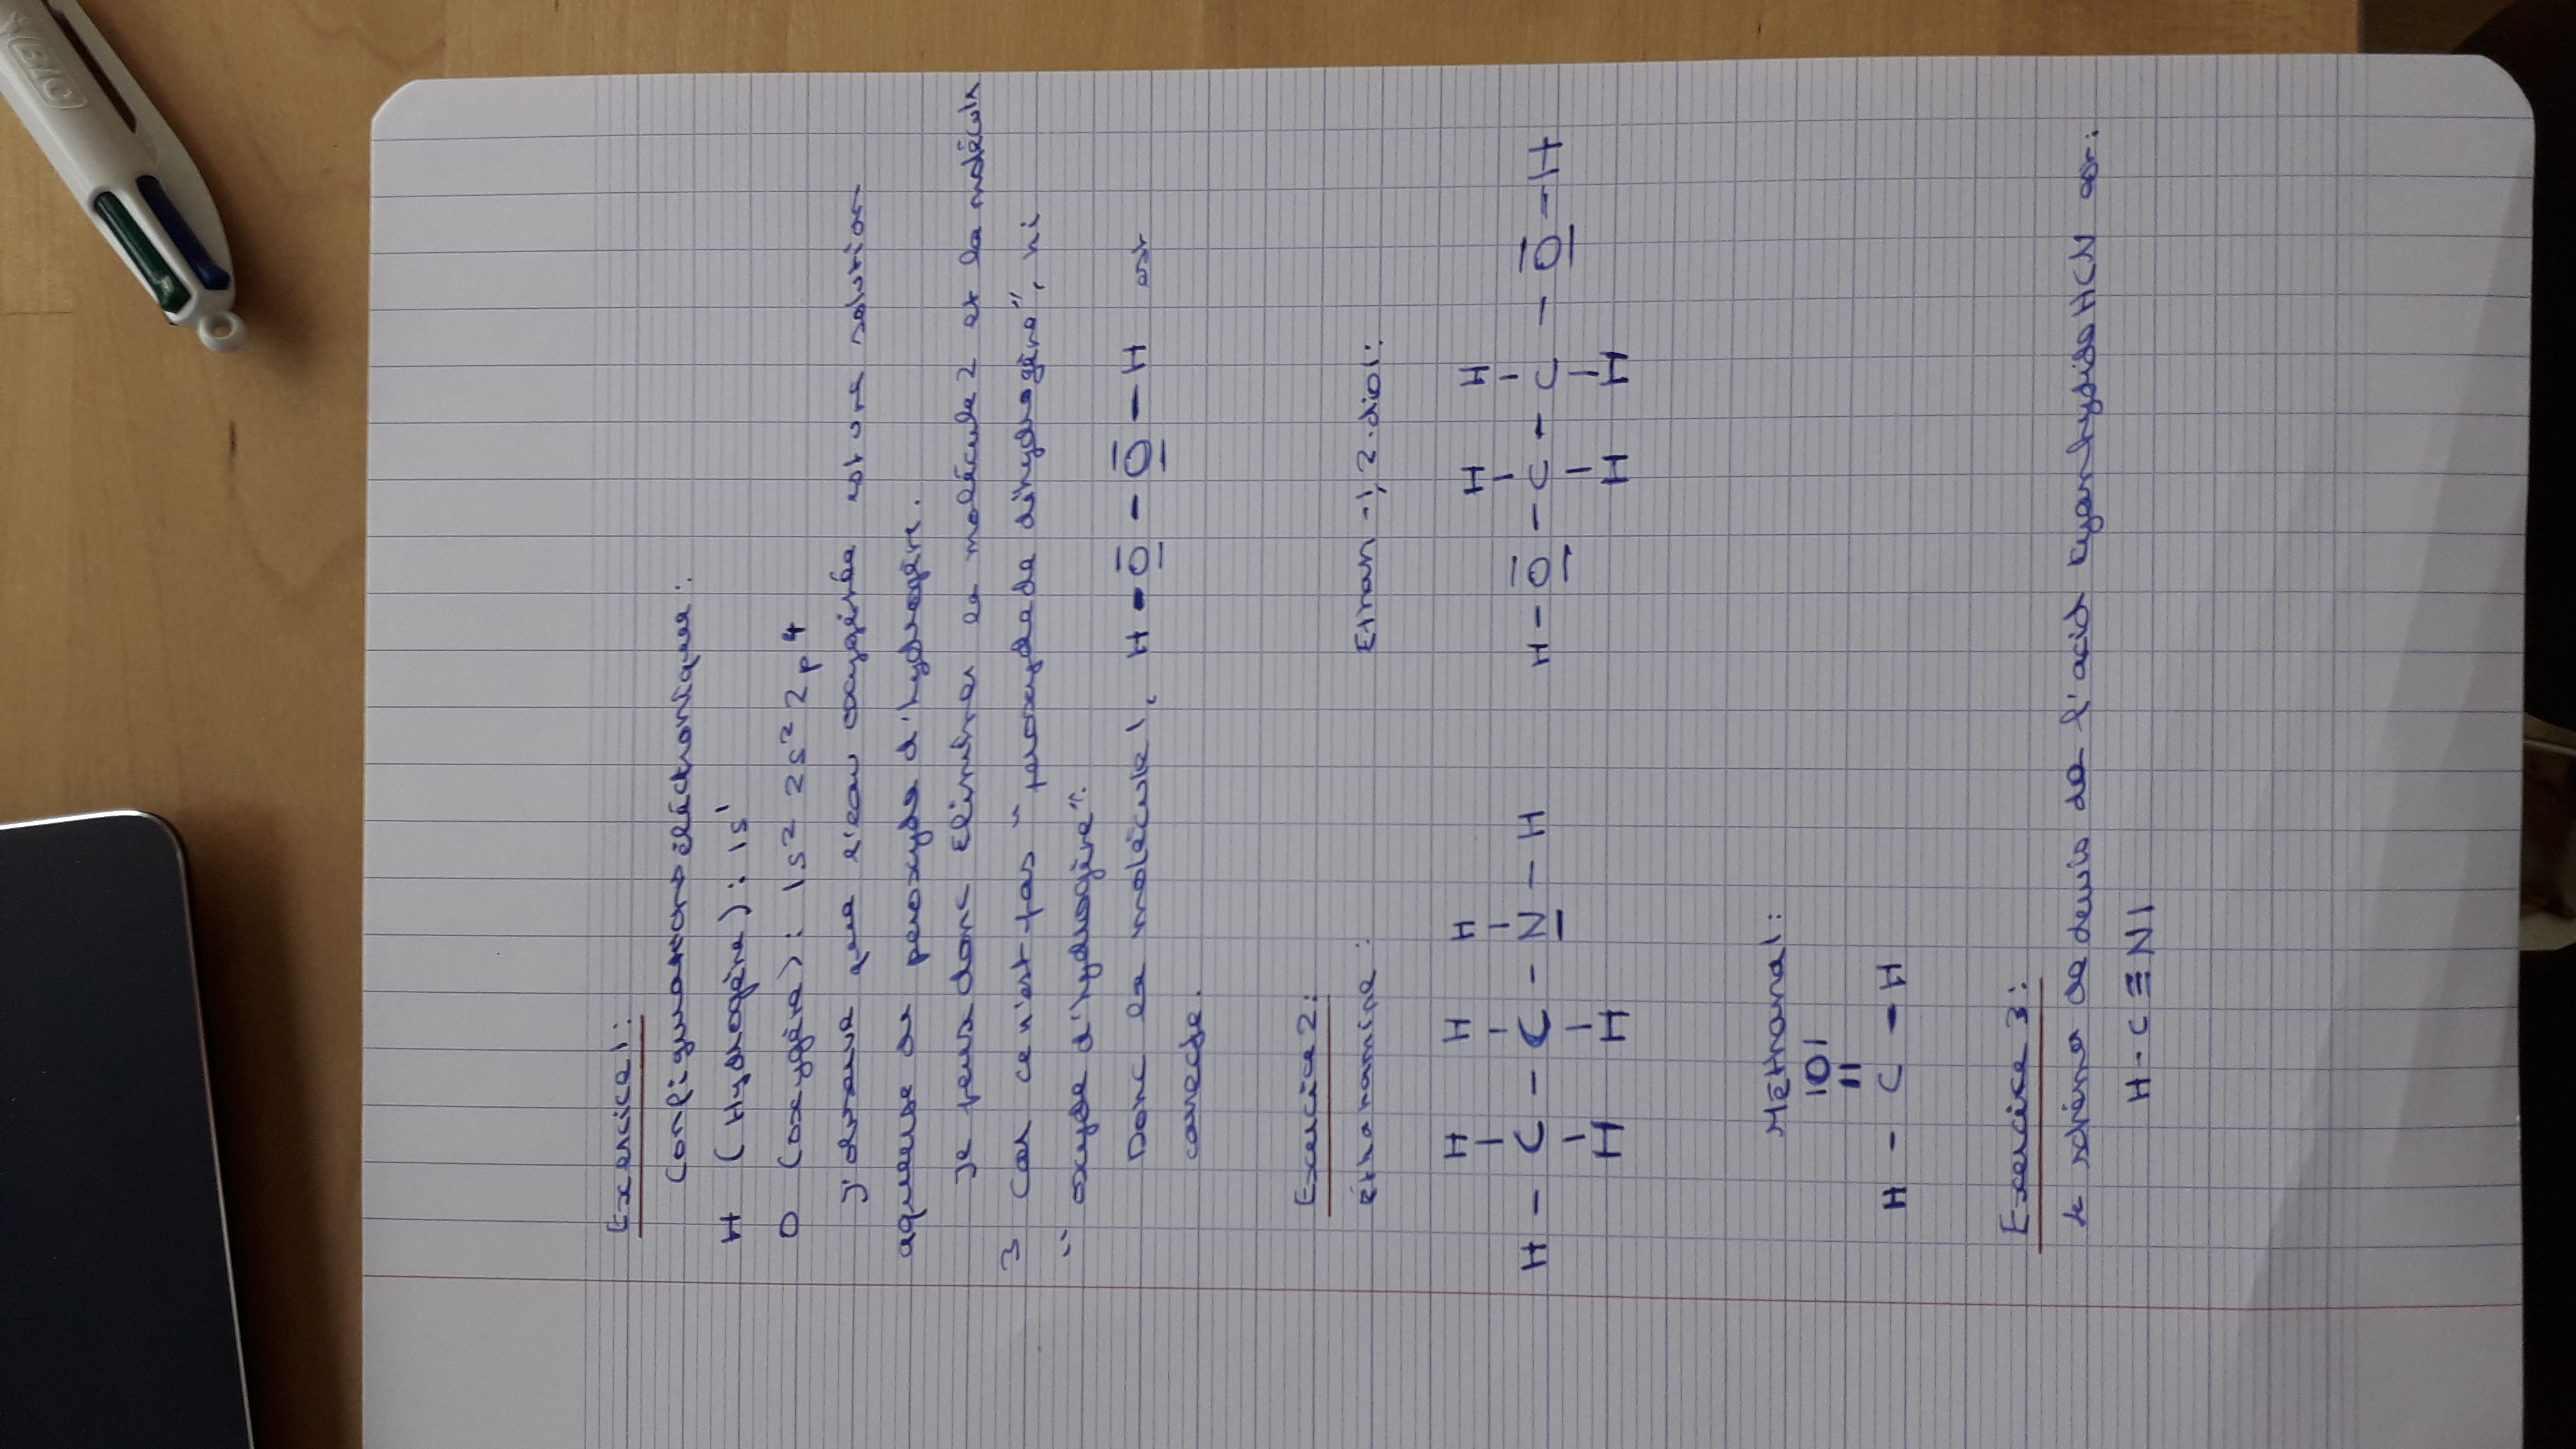 BIC
Exercice 1:
Configurations éléctronique:
H (Hydrogène): 1s¹
O (oxygène): 1s² 2s² 2p⁴
J'observe que l'eau oxygénée est une solution
aqueuse de peroxyde d'hydrogène.
Je peux donc éliminer la molécule 2 et la molécule
3 car ce n'est pas "peroxyde de dihydrogène", ni
"oxyde d'hydrogène".
Donc la molécule 1, H - O̲̅ - O̲̅ - H est
correcte.
Exercice 2:
éthanamine: Ethan-1,2-diol:
H H H H H
| | | | |
H - C - C - N̲ - H H - O̲̅ - C - C - O̲̅ - H
| | | |
H H H H
Méthanal:
|O|
||
H - C - H
Exercice 3:
le schéma de Lewis de l'acid HCN est:
H - C ≡ N|